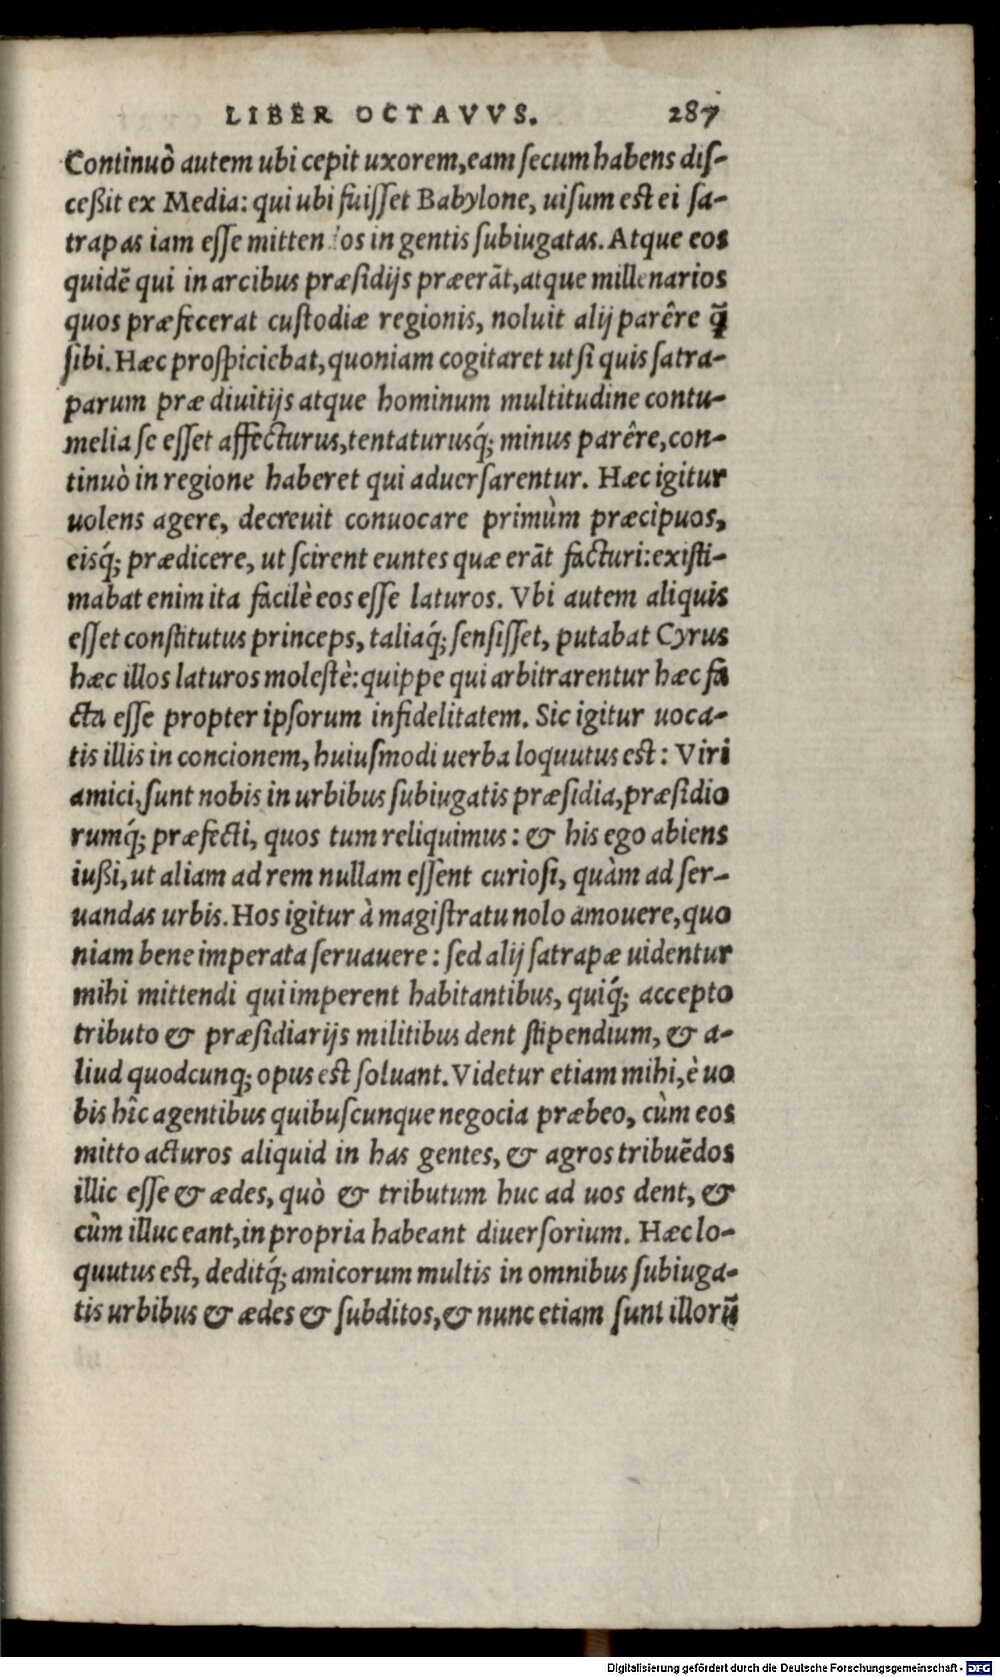 LIBER OCTAVVS. 287
Continuò autem ubi cepit uxorem, eam secum habens dis-
ceßit ex Media: qui ubi fuisset Babylone, uisum est ei sa-
trapas iam esse mitten os in gentis subiugatas. Atque eos
quidē qui in arcibus præsidijs præerāt, atque millenarios
quos præfecerat custodiæ regionis, noluit alij parêre q̃
sibi. Hæc prospiciebat, quoniam cogitaret ut si quis satra-
parum præ diuitijs atque hominum multitudine contu-
melia se esset affecturus, tentaturusq́; minus parêre, con-
tinuò in regione haberet qui aduersarentur. Hæc igitur
uolens agere, decreuit conuocare primùm præcipuos,
eisq́; prædicere, ut scirent euntes quæ erāt facturi: existi-
mabat enim ita facilè eos esse laturos. Vbi autem aliquis
esset constitutus princeps, taliaq́; sensisset, putabat Cyrus
hæc illos laturos molestè: quippe qui arbitrarentur hæc fa
cta esse propter ipsorum infidelitatem. Sic igitur uoca-
tis illis in concionem, huiusmodi uerba loquutus est: Viri
amici, sunt nobis in urbibus subiugatis præsidia, præsidio
rumq́; præfecti, quos tum reliquimus: & his ego abiens
iußi, ut aliam ad rem nullam essent curiosi, quàm ad ser-
uandas urbis. Hos igitur à magistratu nolo amouere, quo
niam bene imperata seruauere: sed alij satrapæ uidentur
mihi mittendi qui imperent habitantibus, quiq́; accepto
tributo & præsidiarijs militibus dent stipendium, & a-
liud quodcunq; opus est soluant. Videtur etiam mihi, è uo
bis hîc agentibus quibuscunque negocia præbeo, cùm eos
mitto acturos aliquid in has gentes, & agros tribuēdos
illic esse & ædes, quò & tributum huc ad uos dent, &
cùm illuc eant, in propria habeant diuersorium. Hæc lo-
quutus est, deditq́; amicorum multis in omnibus subiuga-
tis urbibus & ædes & subditos, & nunc etiam sunt illorū
Digitalisierung gefördert durch die Deutsche Forschungsgemeinschaft - DFG